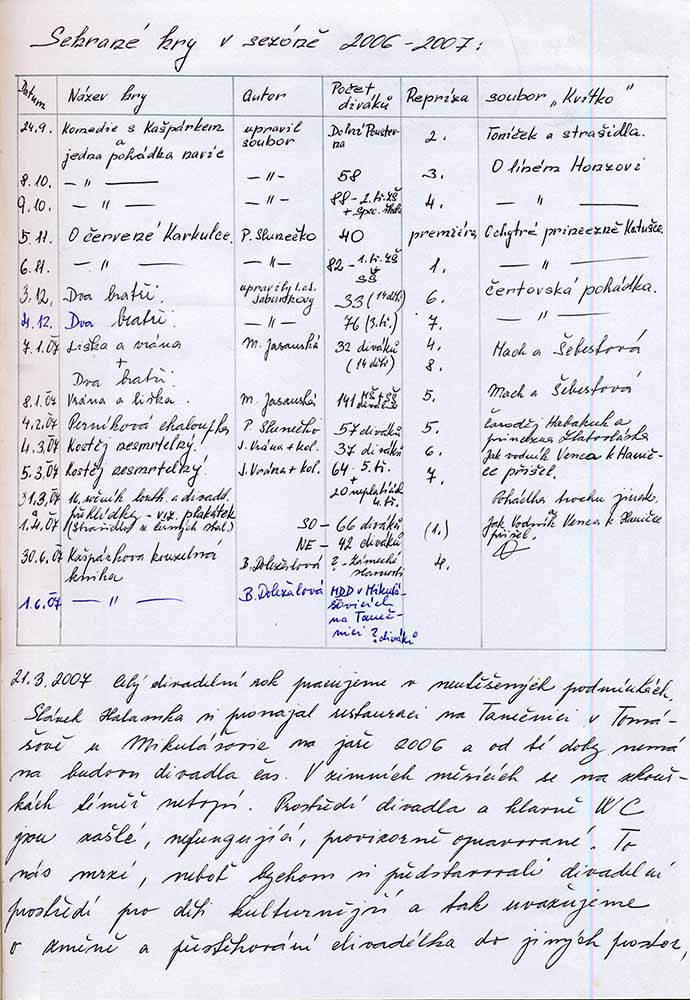 Sehrané hry v sezóně 2006-2007:
Datum Název hry autor Počet diváků Repríza soubor „Kvítko"
24.9. Komedie s Kašpárkem upravil soubor Dolní Poustevna 2. Toníček a strašidla.
a
jedna pohádka navíc O líném Honzovi
8.10. — " — — " — 58 3.
9.10. — " — — " — 88 - 2. tř. ZŠ + Spec. škola 4. — " —
5.11. O červené Karkulce. P. Slunečko 40 premiéra O chytré princezně Katušce.
6.11. — " — — " — 82 - 1. tř. ZŠ + SŠ 1. — " —
3.12. Dva bratři. upravily 33 (14 dětí) 6. čertovská pohádka.
4.12. Dva bratři. — " — 76 (3. tř.) 7. — " —
7.1.07 Liška a vrána M. Jasanská 32 diváků 4. Mach a Šebestová
+ (14 dětí) 8.
Dva bratři.
8.1.07 Vrána a liška. M. Jasanská 141 MŠ+SŠ diváků 5. Mach a Šebestová
4.2.07 Perníková chaloupka P. Slunečko 57 diváků 5. čaroděj Habakuk a princezna Zlatovláska
4.3.07 Kostěj nesmrtelný. J. Vrána + kol. 37 diváků 6. Jak vodník Venca k Haničce přišel.
5.3.07 Kostěj nesmrtelný! J. Vrána + kol. 64 - 5. tř. 7.
+
20 neplatících 4. tř.
31.3.07 16. ročník loutk. a divadl. Pohádka trochu jinak.
a přehlídky - viz. plakátek SO - 66 diváků (1.) Jak Vodník Venca k Haničce přišel.
1.4.07 (Strašidla z černých skal.)
NE - 42 diváků
30.6.07 Kašpárkova kouzelná B. Doležalová ? - Zámecké slavnosti 4.
kniha
1.6.07 — " — B. Doležalová MDD v Mikulášovicích
na Tanečnici ? diváků
21.3.2007 Celý divadelní rok pracujeme v neutěšených podmínkách.
Slávek Halamka si pronajal restauraci na Tanečnici v Tomá-
šově u Mikulášovic na jaře 2006 a od té doby nemá
na budovu divadla čas. V zimních měsících se na zkouš-
kách téměř netopí. Prostředí divadla a hlavně WC
jsou zašlé, nefungující, provizorně opravované. To
nás mrzí, neboť bychom si představovali divadelní
prostředí pro děti kulturnější a tak uvažujeme
o změně a přestěhování divadélka do jiných prostor,